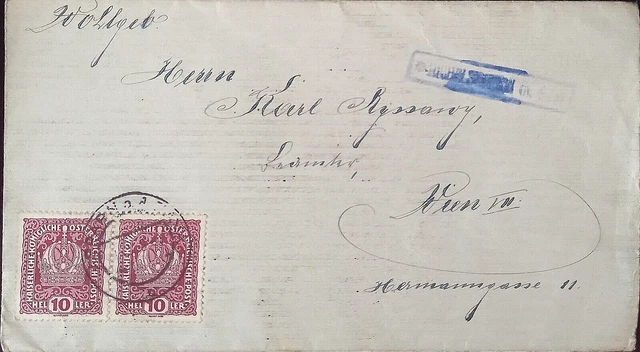 Wohlgeb.
Herrn
Karl Ryssawy,
Beamter,
Wien VIII.
Hermanngasse 11
KAISERLICHE KÖNIGLICHE ÖSTERREICHISCHE POST
HEL 10 LER
KAISERLICHE KÖNIGLICHE ÖSTERREICHISCHE POST
HEL 10 LER